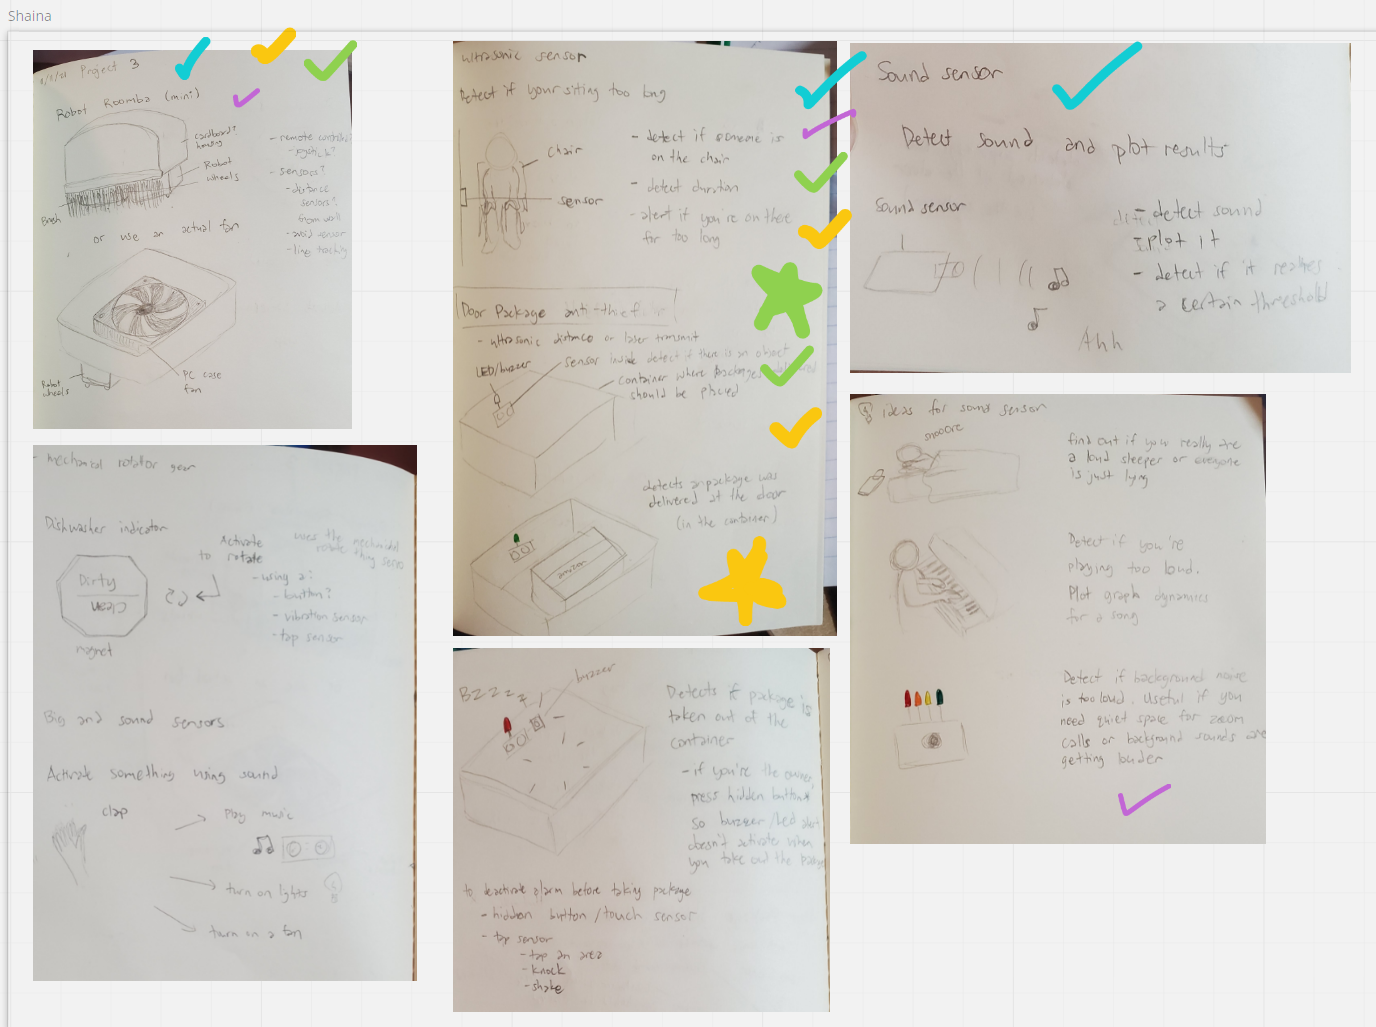 Shaina
Project 3
Robot Roomba (mini)
cardboard?
housing
Robot
wheels
Brush
- remote
- joystick?
- sensors?
- distance
sensors?
from wall
- avoid sensor
- line tracking
or use an actual fan
Robot
wheels
PC case
fan
- mechanical rotator gear
Dishwasher indicator
Dirty
Clean
magnet
Activate
to rotate
uses the mechanical
rotate thing
- using a:
- button?
- vibration sensor
- tap sensor
Big and sound sensors
Activate something using sound
clap
Play music
turn on lights
turn on a fan
ultrasonic sensor
Detect if your siting too long
Chair
sensor
- detect if someone is
on the chair
- detect duration
- alert if you're on there
for too long
Door Package anti-thief
- ultrasonic distance or laser transmit
LED/buzzer
sensor inside detect if there is an object
container where packages
should be placed
detects a package was
delivered at the door
(in the container)
amazon
Bzzzz
buzzer
Detects if package is
taken out of the
container
- if you're the owner,
press hidden button
so buzzer/led
doesn't activate when
you take out the
to deactivate alarm before taking package
- hidden button/touch sensor
- tap sensor
- tap an area
- knock
- shake
Sound sensor
Detect sound and plot results
Sound sensor
- detect sound
- plot it
- detect if it reaches
a certain threshold
Ahh
ideas for sound sensor
snooore
find out if your really are
a loud sleeper or everyone
is just lying
Detect if you're
playing too loud.
Plot graph dynamics
for a song
Detect if background noise
is too loud. Useful if you
need quiet space for zoom
calls or background sounds are
getting louder